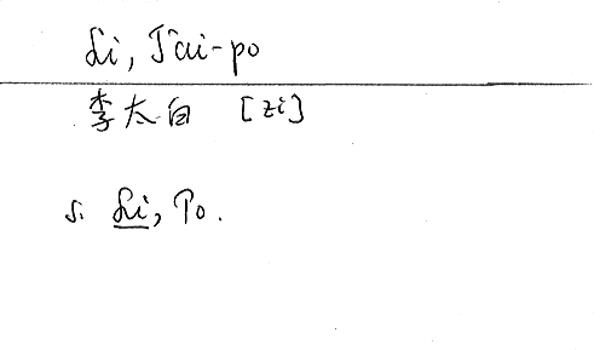 Li, T'ai-po
李太白 [zi]
s. Li, Po.